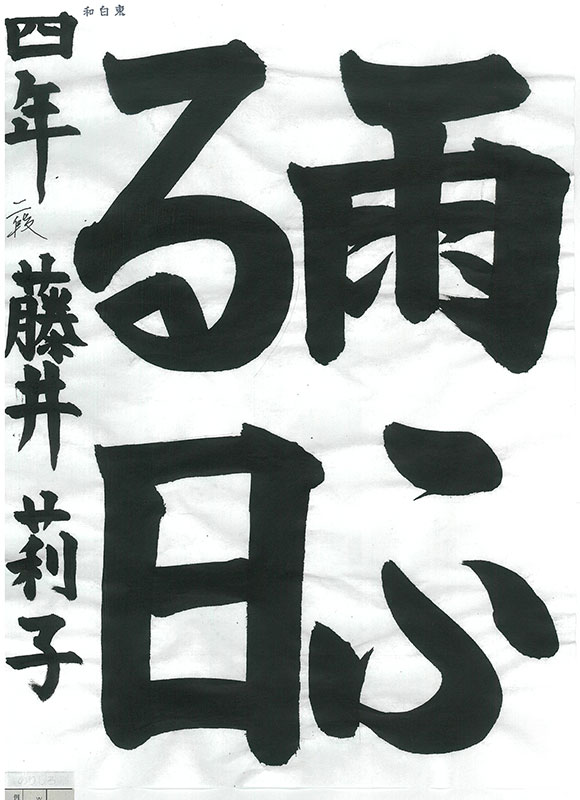 和白東
雨ふ
る日
四年 二段 藤井 莉子